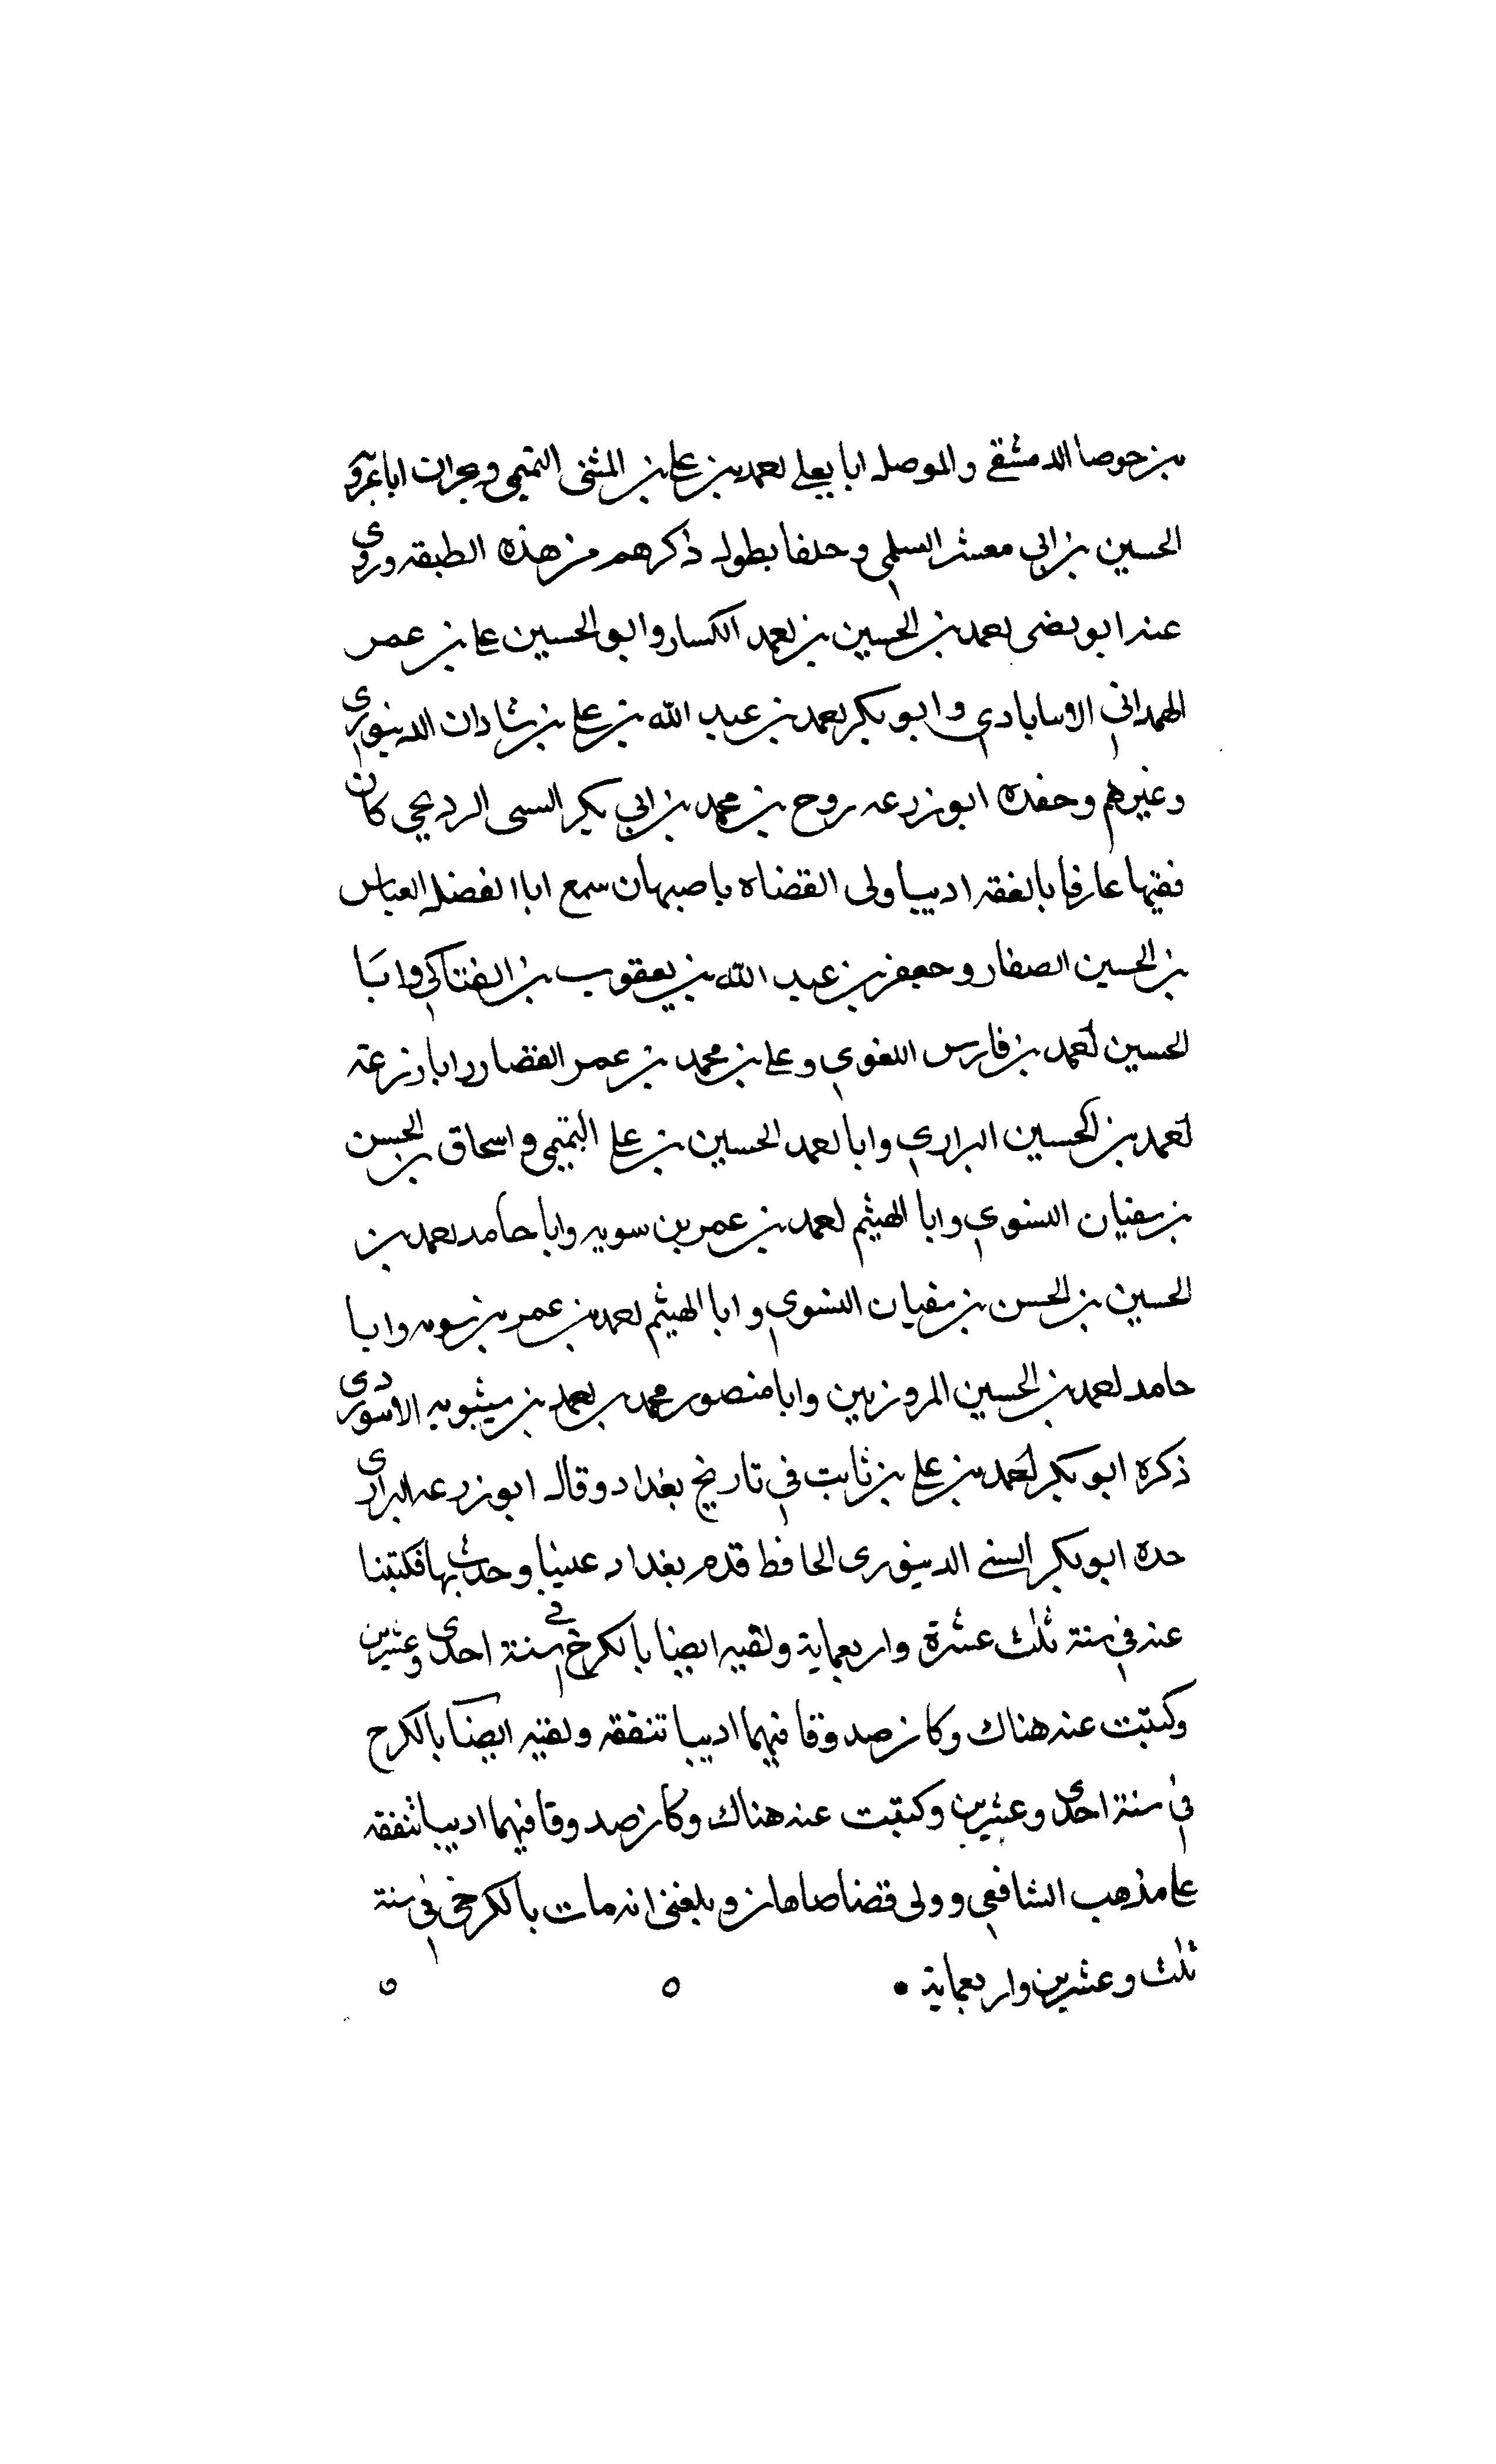 بن جوصا الدمشقي والموصل ابا يعلي احمد بن علي بن المثنى التميمي وبحران ابا عروبة
الحسين بن ابي معشر السلمي وخلقا بطول ذكرهم من هذه الطبقه وروى
عنه ابو نصر احمد بن الحسين بن احمد الكسار وابو الحسين علي بن عمر
الهمداني الاساباذي وابو بكر احمد بن عبد الله بن علي بن شاذان الدينورى
وغيرهم وحفده ابو زرعه روح بن محمد بن ابي بكر السني كان
فقيها عارفا بالفقه اديبا ولى القضاه باصبهان سمع ابا الفضل العباس
بن الحسين الصفار وجعفر بن عبد الله بن يعقوب بن الفناكي وابا
الحسين احمد بن فارس اللغوي وعلي بن محمد بن عمر القصار وابا زرعة
احمد بن الحسين الرازي وابا احمد الحسين بن علي التميمي واسحاق بن الحسن
بن سفيان النسوي وابا الهيثم احمد بن عمر بن سويه وابا حامد احمد بن
الحسين بن الحسن بن سفيان النسوي وابا الهيثم احمد بن عمر بن سويه وابا
حامد احمد بن الحسين المروزيين وابا منصور محمد بن احمد بن
ذكره ابو بكر احمد بن علي بن ثابت في تاريخ بغداد وقال ابو زرعه الرازى
حده ابو بكر السني الدينورى الحافظ قدم بغداد علينا وحدث بها فكتبنا
عنه في سنة ثلث عشرة واربعماية ولقيه ايضا بالكرخ في سنة احدى وعشرين
وكتبت عنه هناك وكان صدوقا فهما اديبا تتفقه ولقيه ايضا بالكرخ
في سنة احدى وعشرين وكتبت عنه هناك وكان صدوقا فهما اديبا تتفقه
علي مذهب الشافعي وولى قضا اصبهان وبلغني انه مات بالكرخي في سنة
ثلث وعشرين واربعماية